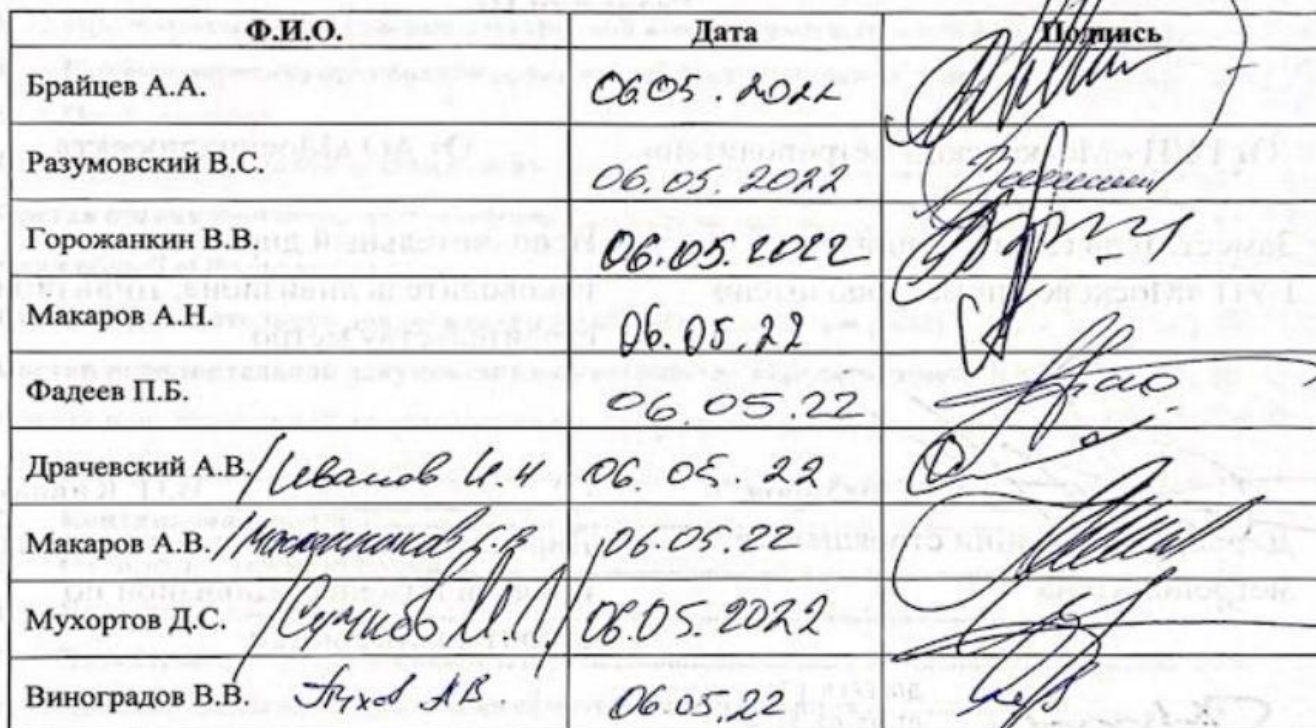 Ф.И.О. Дата Подпись
Брайцев А.А. 06.05.2022
Разумовский В.С. 06.05.2022
Горожанкин В.В. 06.05.2022
Макаров А.Н. 06.05.22
Фадеев П.Б. 06.05.22
Драчевский А.В. /Иванов И.Н 06.05.22
Макаров А.В. 06.05.22
Мухортов Д.С. 06.05.2022
Виноградов В.В. 06.05.22